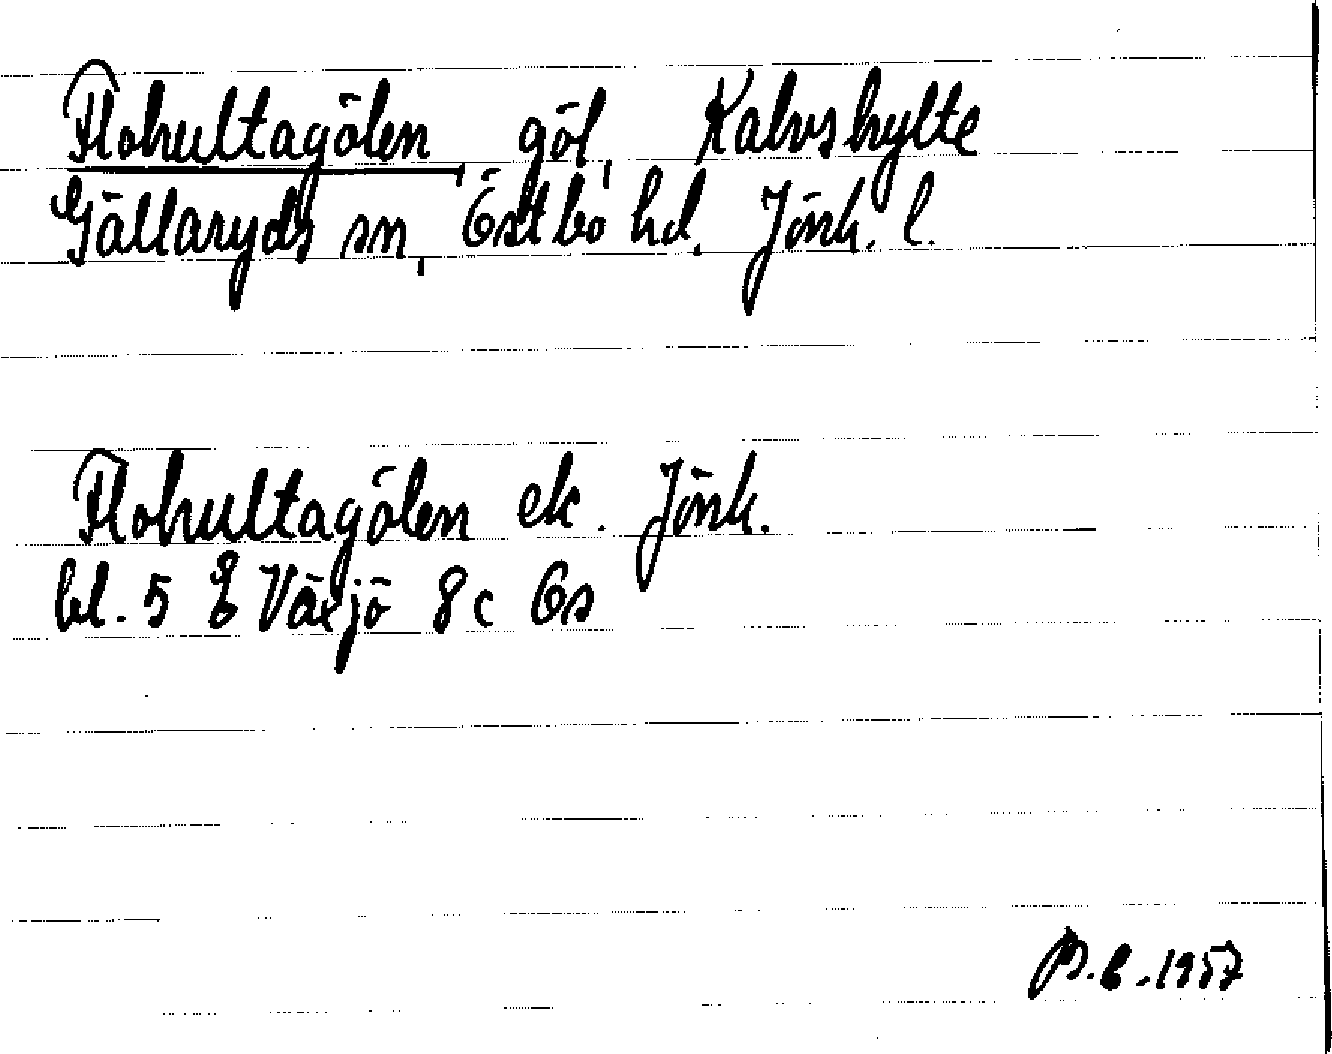 Flohultagölen, göl, Kalvshylte
Gällaryds sn, Östbo hd. Jönk. l.
Flohultagölen ek. Jönk.
bl. 5 E Växjö 8c Gs
B.E. 1957